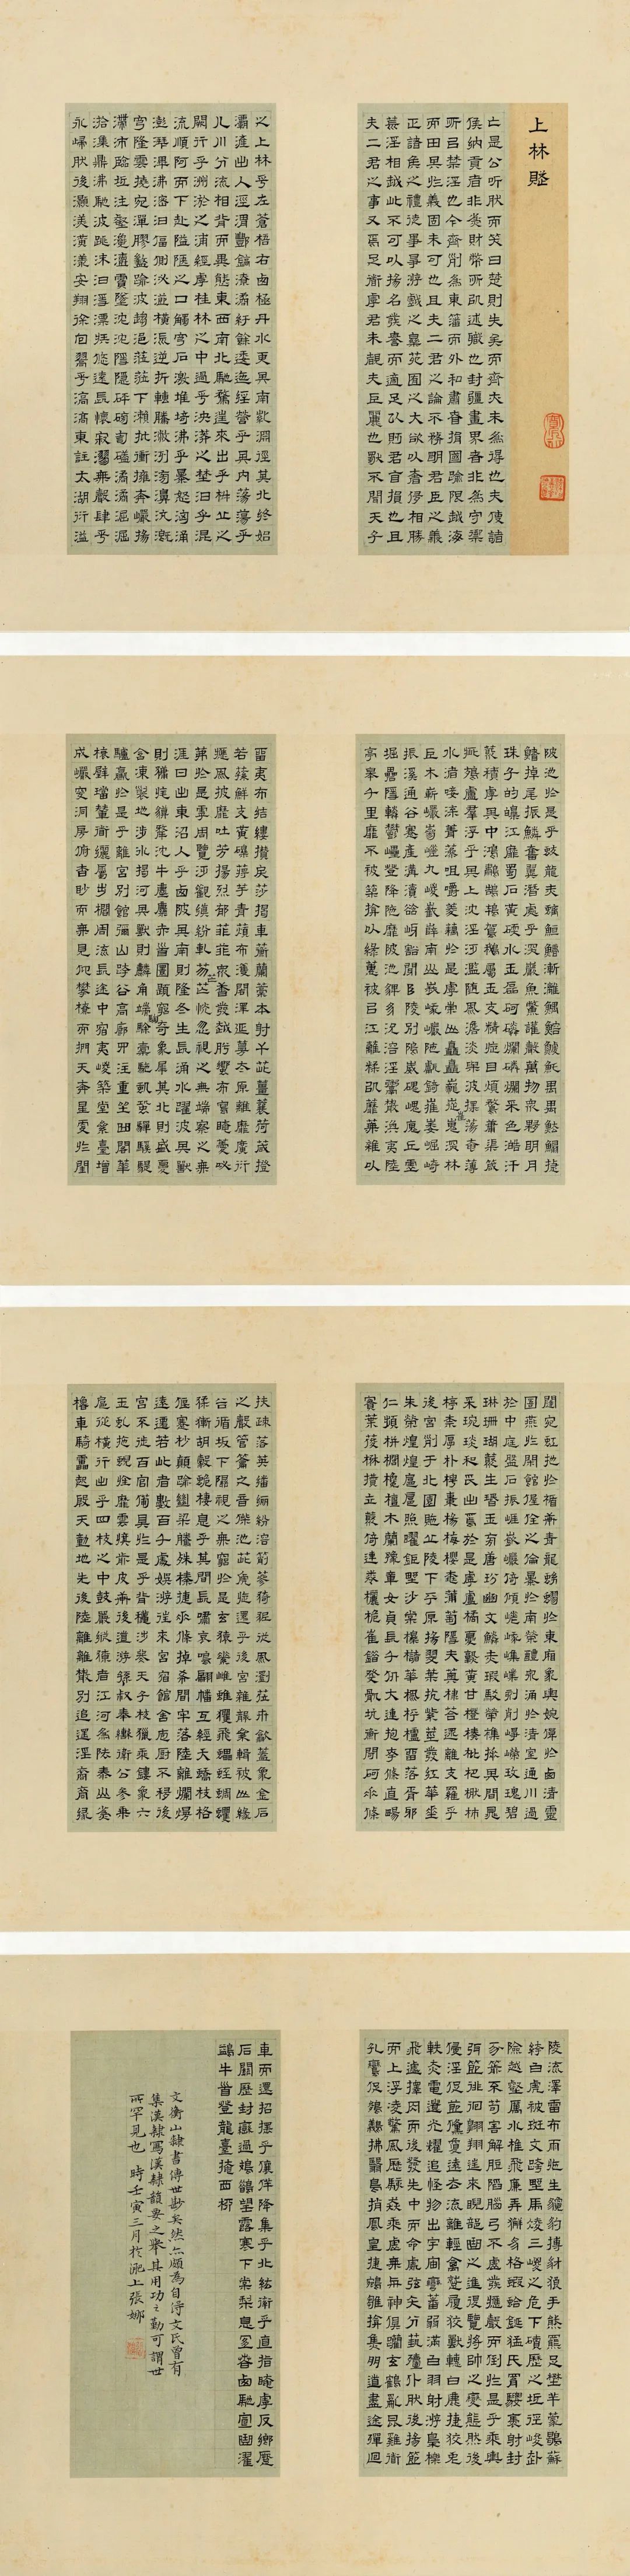 上林賦
亡是公听肰而笑曰楚則失矣而齊夫未爲得也夫使諸
侯納貢者非爲財幣所以述職也封疆畫界者非爲守禦
所以禁淫也今齊列爲東藩而外和肅昚捐國踰限越海
而田其於義固未可也且夫二君之論不務明君臣之義
正諸矦之禮徒事爭游戲之樂苑囿之大欲以奢侈相勝
荒淫相越此不可以揚名發譽而適足以貶君自損也且
夫二君之事又焉足道虖君未覩夫巨麗也獨不聞天子
之上林乎左蒼梧右西極丹水更其南紫淵徑其北終始
灞滻出入涇渭酆鎬潦潏紆餘委迤經營乎其內蕩蕩乎
八川分流相背而異態東西南北馳騖往來出乎椒丘之
闕行乎洲淤之浦經虖桂林之中過乎泱漭之壄汩乎混
流順阿而下赴隘陿之口觸穹石激堆埼沸乎暴怒洶涌
澎湃滭沸宓汩偪側泌瀄橫流逆折轉騰潎洌滂濞沆溉
穹隆雲橈宛潬膠盭踰波趨浥莅莅下瀨批巖衝擁奔揚
滯沛臨坻注壑瀺灂霣墜沈沈隱隱砰磅訇礚潏潏淈淈
湁潗鼎沸馳波跳沫汩㶁漂疾悠遠長懷寂漻無聲肆乎
永歸肰後灝溔潢漾安翔徐佪翯乎滈滈東注太湖衍溢
陂池於是乎蛟龍赤螭䱭䲛漸離鰅鰫鰬魠禺禺魼鰨揵
鰭掉尾振鱗奮翼潛處乎深巖魚鱉讙聲萬物衆夥明月
珠子的皪江靡蜀石黃碝水玉磊砢磷爛磷爛采色澔汗
藂積虖其中鴻鷫鵠鴇鴐鵝屬玉交精旋目煩鶩庸渠箴
疵鵁盧羣浮乎其上沈淫泛濫隨風澹淡與波搖蕩奄薄
水渚唼喋菁藻咀嚼菱藕於是虖崇山矗矗巃嵸崔嵬深林
巨木嶄巖參差九嵕巀嶭南山峩峩巖陁甗錡摧崣崛崎
振溪通谷蹇產溝瀆谽呀豁閜阜陵別隝崴磈嵔廆丘虛
堀礨隱轔鬱㠥登降陁靡陂池貏豸沇溶淫鬻散渙夷陸
亭皋千里靡不被築揜以綠蕙被以江離糅以蘼蕪雜以
留夷布結縷攢戾莎揭車蘅蘭槀本射干茈薑蘘荷葴橙
若蓀鮮支黃礫蔣芧青薠布濩閎澤延蔓太原離靡廣衍
應風披靡吐芳揚烈郁郁菲菲衆香發越肸蠁布寫晻薆咇
茀於是虖周覽泛觀縝紛軋芴芒芒恍忽視之無端察之無
涯日出東沼入乎西陂其南則隆冬生長涌水躍波其獸
則㺎旄貘犛沈牛麈麋赤首圜題窮奇象犀其北則盛夏
含凍裂地涉冰揭河其獸則麟角端騊駼橐駝蛩蛩驒騱駃騠
驢驘於是乎離宮別館彌山跨谷高廊四注重坐曲閣華
榱璧璫輦道纚屬步櫩周流長途中宿夷嵕築堂絫臺增
成巖突洞房俯杳眇而無見仰攀橑而捫天奔星更於閨
闥宛虹扡於楯軒青龍蚴蟉於東廂象輿婉僤於西清靈
圉燕於閒館偓佺之倫暴於南榮醴泉涌於清室通川過
於中庭盤石振崖嶔巖倚傾嵯峨㠎嶪刻削崢嶸玫瑰碧
琳珊瑚叢生瑉玉旁唐玢豳文鱗赤瑕駁犖雜臿其間晁
采琬琰和氏出焉於是虖盧橘夏孰黃甘橙楱枇杷橪柿
楟柰厚朴梬棗楊梅櫻桃蒲萄隱夫薁棣荅遝離支羅乎
後宮列于北園貤丘陵下平原揚翠葉扤紫莖發紅華垂
朱榮煌煌扈扈照曜鉅壄沙棠櫟櫧華楓枰櫨留落胥邪
仁頻栟櫚欃檀木蘭豫章女貞長千仞大連抱夸條直暢
實葉葰楙攢立叢倚連卷欐佹崔錯癹骫坑衡閜砢垂條
扶疎落英幡纚紛溶萷蔘猗狔從風瀏莅卉歙蓋象金石
之聲管籥之音偨池茈虒旋還乎後宮雜襲絫輯被山緣
谷循坂下隰視之無窮於是玄猿素雌蜼玃飛蠝蛭蜩蠼
猱獑胡豰蛫棲息乎其間長嘯哀鳴翩幡互經夭蟜枝格
偃蹇杪顛踰絕梁騰殊榛捷垂條掉希間牢落陸離爛熳
遠遷若此者數百千處娛游往來宮宿館舍庖廚不移後
宮不徙百官備具於是乎背秋涉冬天子校獵乘鏤象六
玉虯拖蜺旌靡雲旗前皮軒後道游孫叔奉轡衛公參乘
扈從橫行出乎四校之中鼓嚴簿縱獵者江河爲阹泰山爲
櫓車騎靁起殷天動地先後陸離離散別追淫淫裔裔緣
陵流澤雲布雨施生貔豹搏豺狼手熊羆足壄羊蒙鶡蘇
絝白虎被斑文跨壄馬凌三嵕之危下磧歷之坻徑峻赴
險越壑厲水椎飛廉弄獬豸格蝦蛤鋋猛氏羂騕褭射封
豕箭不苟害解脰陷腦弓不虛發應聲而倒於是乎乘輿
弭節徘徊翱翔往來睨部曲之進退覽將帥之變態肰後
侵淫促節儵敻遠去流離輕禽蹵履狡獸轊白鹿捷狡兔
軼赤電遺光耀追怪物出宇宙彎蕃弱滿白羽射游梟櫟
飛遽擇肉而後發先中而命處弦矢分藝殪仆肰後揚節
而上浮凌驚風歷駭焱乘虛無與神俱躪玄鶴亂昆雞遒
孔鸞促鵔鸃拂翳鳥捎鳳皇捷鵷雛揜焦明道盡途殫迴
車而還招搖乎襄羊降集乎北紘率乎直指晻虖反鄉蹷
石闕歷封巒過鳷鵲望露寒下棠梨息宜春西馳宣曲濯
鷁牛首登龍臺掩西柳
文衡山隸書傳世尠矣然亦頗為自淂文氏曾有
集漢隸寫漢隸韻要之舉其用功之勤可謂世
所罕見也 時壬寅三月於滬上張娜